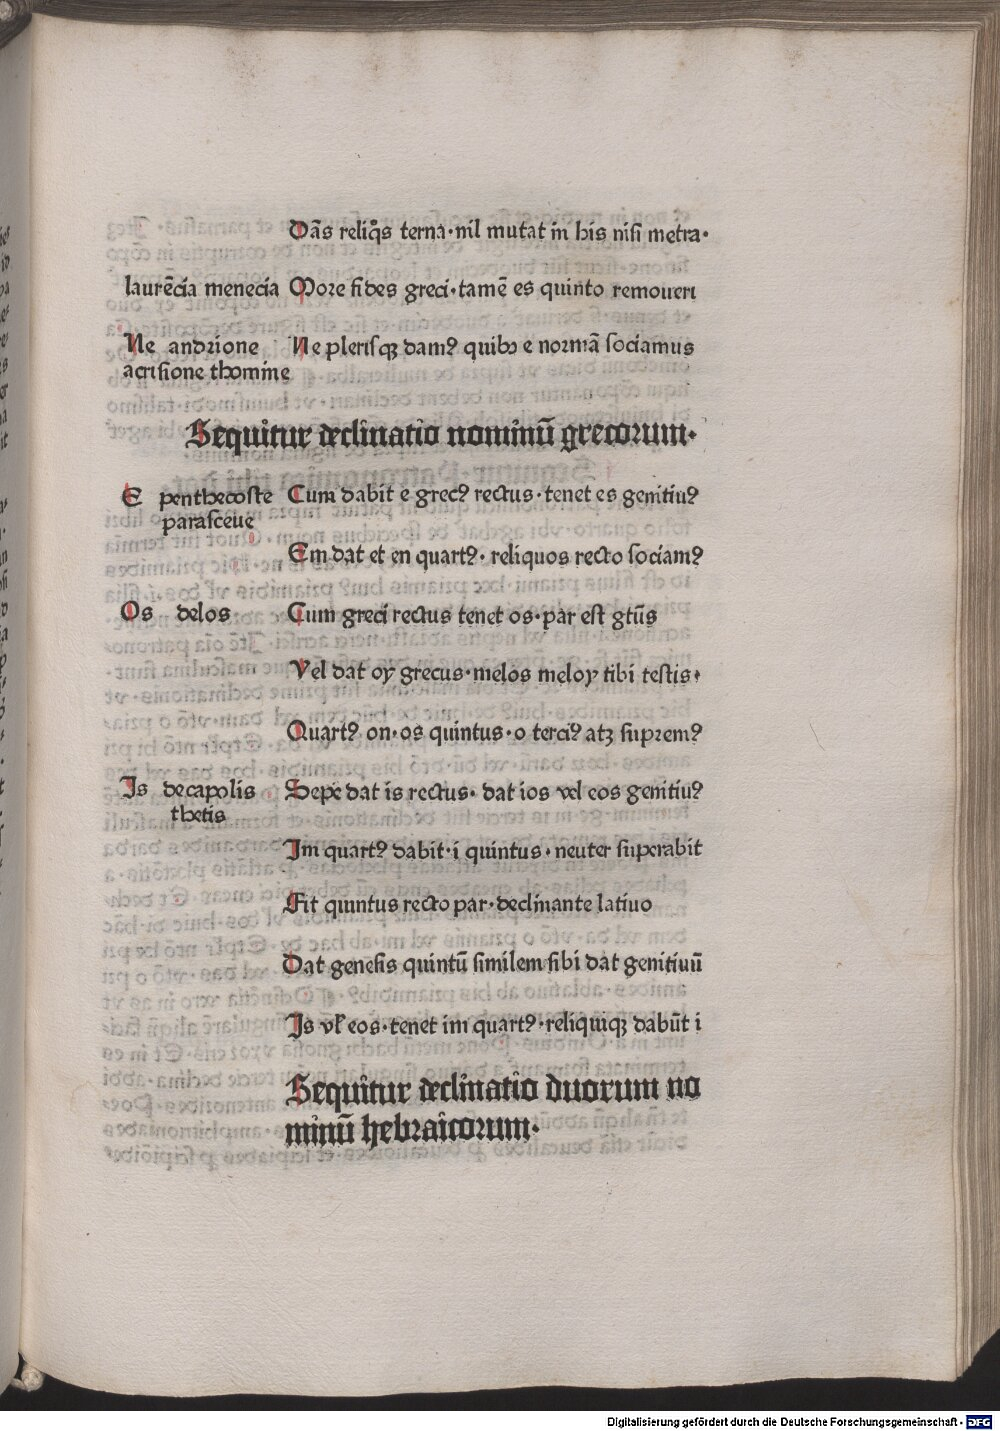 Dãs reliq̃s terna·nil mutat in his nisi metra·
laurẽcia menecia More fides greci·tamẽ es quinto remoueri
Ne andrione Ne plerisqꝫ damꝰ quibꝰ e normã sociamus
acrisione thomine
Sequitur declinatio nominũ grecorum·
E penthecoste Cum dabit e grecꝰ rectus·tenet es genitiuꝰ
parasceue
Em dat et en quartꝰ·reliquos recto sociamꝰ
Os delos Cum greci rectus tenet os·par est gtũs
Vel dat oy grecus·melos meloy tibi testis·
Quartꝰ on·os quintus·o terciꝰ atqꝫ supremꝰ
Is decapolis Sepe dat is rectus·dat ios vel eos genitiuꝰ
thetis
Im quartꝰ dabit·i quintus·neuter superabit
Fit quintus recto par·declinante latiuo
Dat genesis quintũ similem sibi dat genitiuũ
Is vl̕ eos·tenet im quartꝰ·reliquiqꝫ dabũt i
Sequitur declinatio duorum no
minũ hebraicorum·
Digitalisierung gefördert durch die Deutsche Forschungsgemeinschaft - DFG